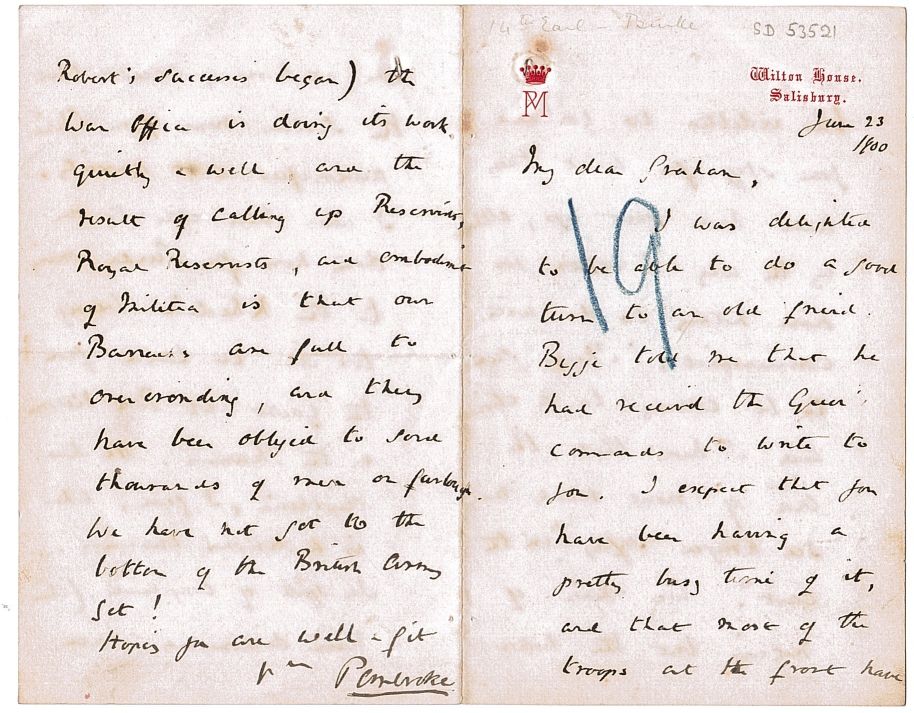 14th Earl – Burke
SD 53521
PM
Wilton House.
Salisbury.
June 23
1900
My dear Graham,
19
I was delighted
to be able to do a good
turn to an old friend.
Bigge told me that he
had received the Queen's
commands to write to
you. I expect that you
have been having a
pretty busy time of it,
and that most of the
troops at the front have
Robert's successes began) the
War Office is doing its work
quietly & well and the
result of calling up Reservists,
Royal Reservists, and embodiment
of Militia is that our
Barracks are full to
overcrowding, and they
have been obliged to send
thousands of men on furlough.
We have not got to the
bottom of the British Army
yet!
Hoping you are well & fit
Pembroke